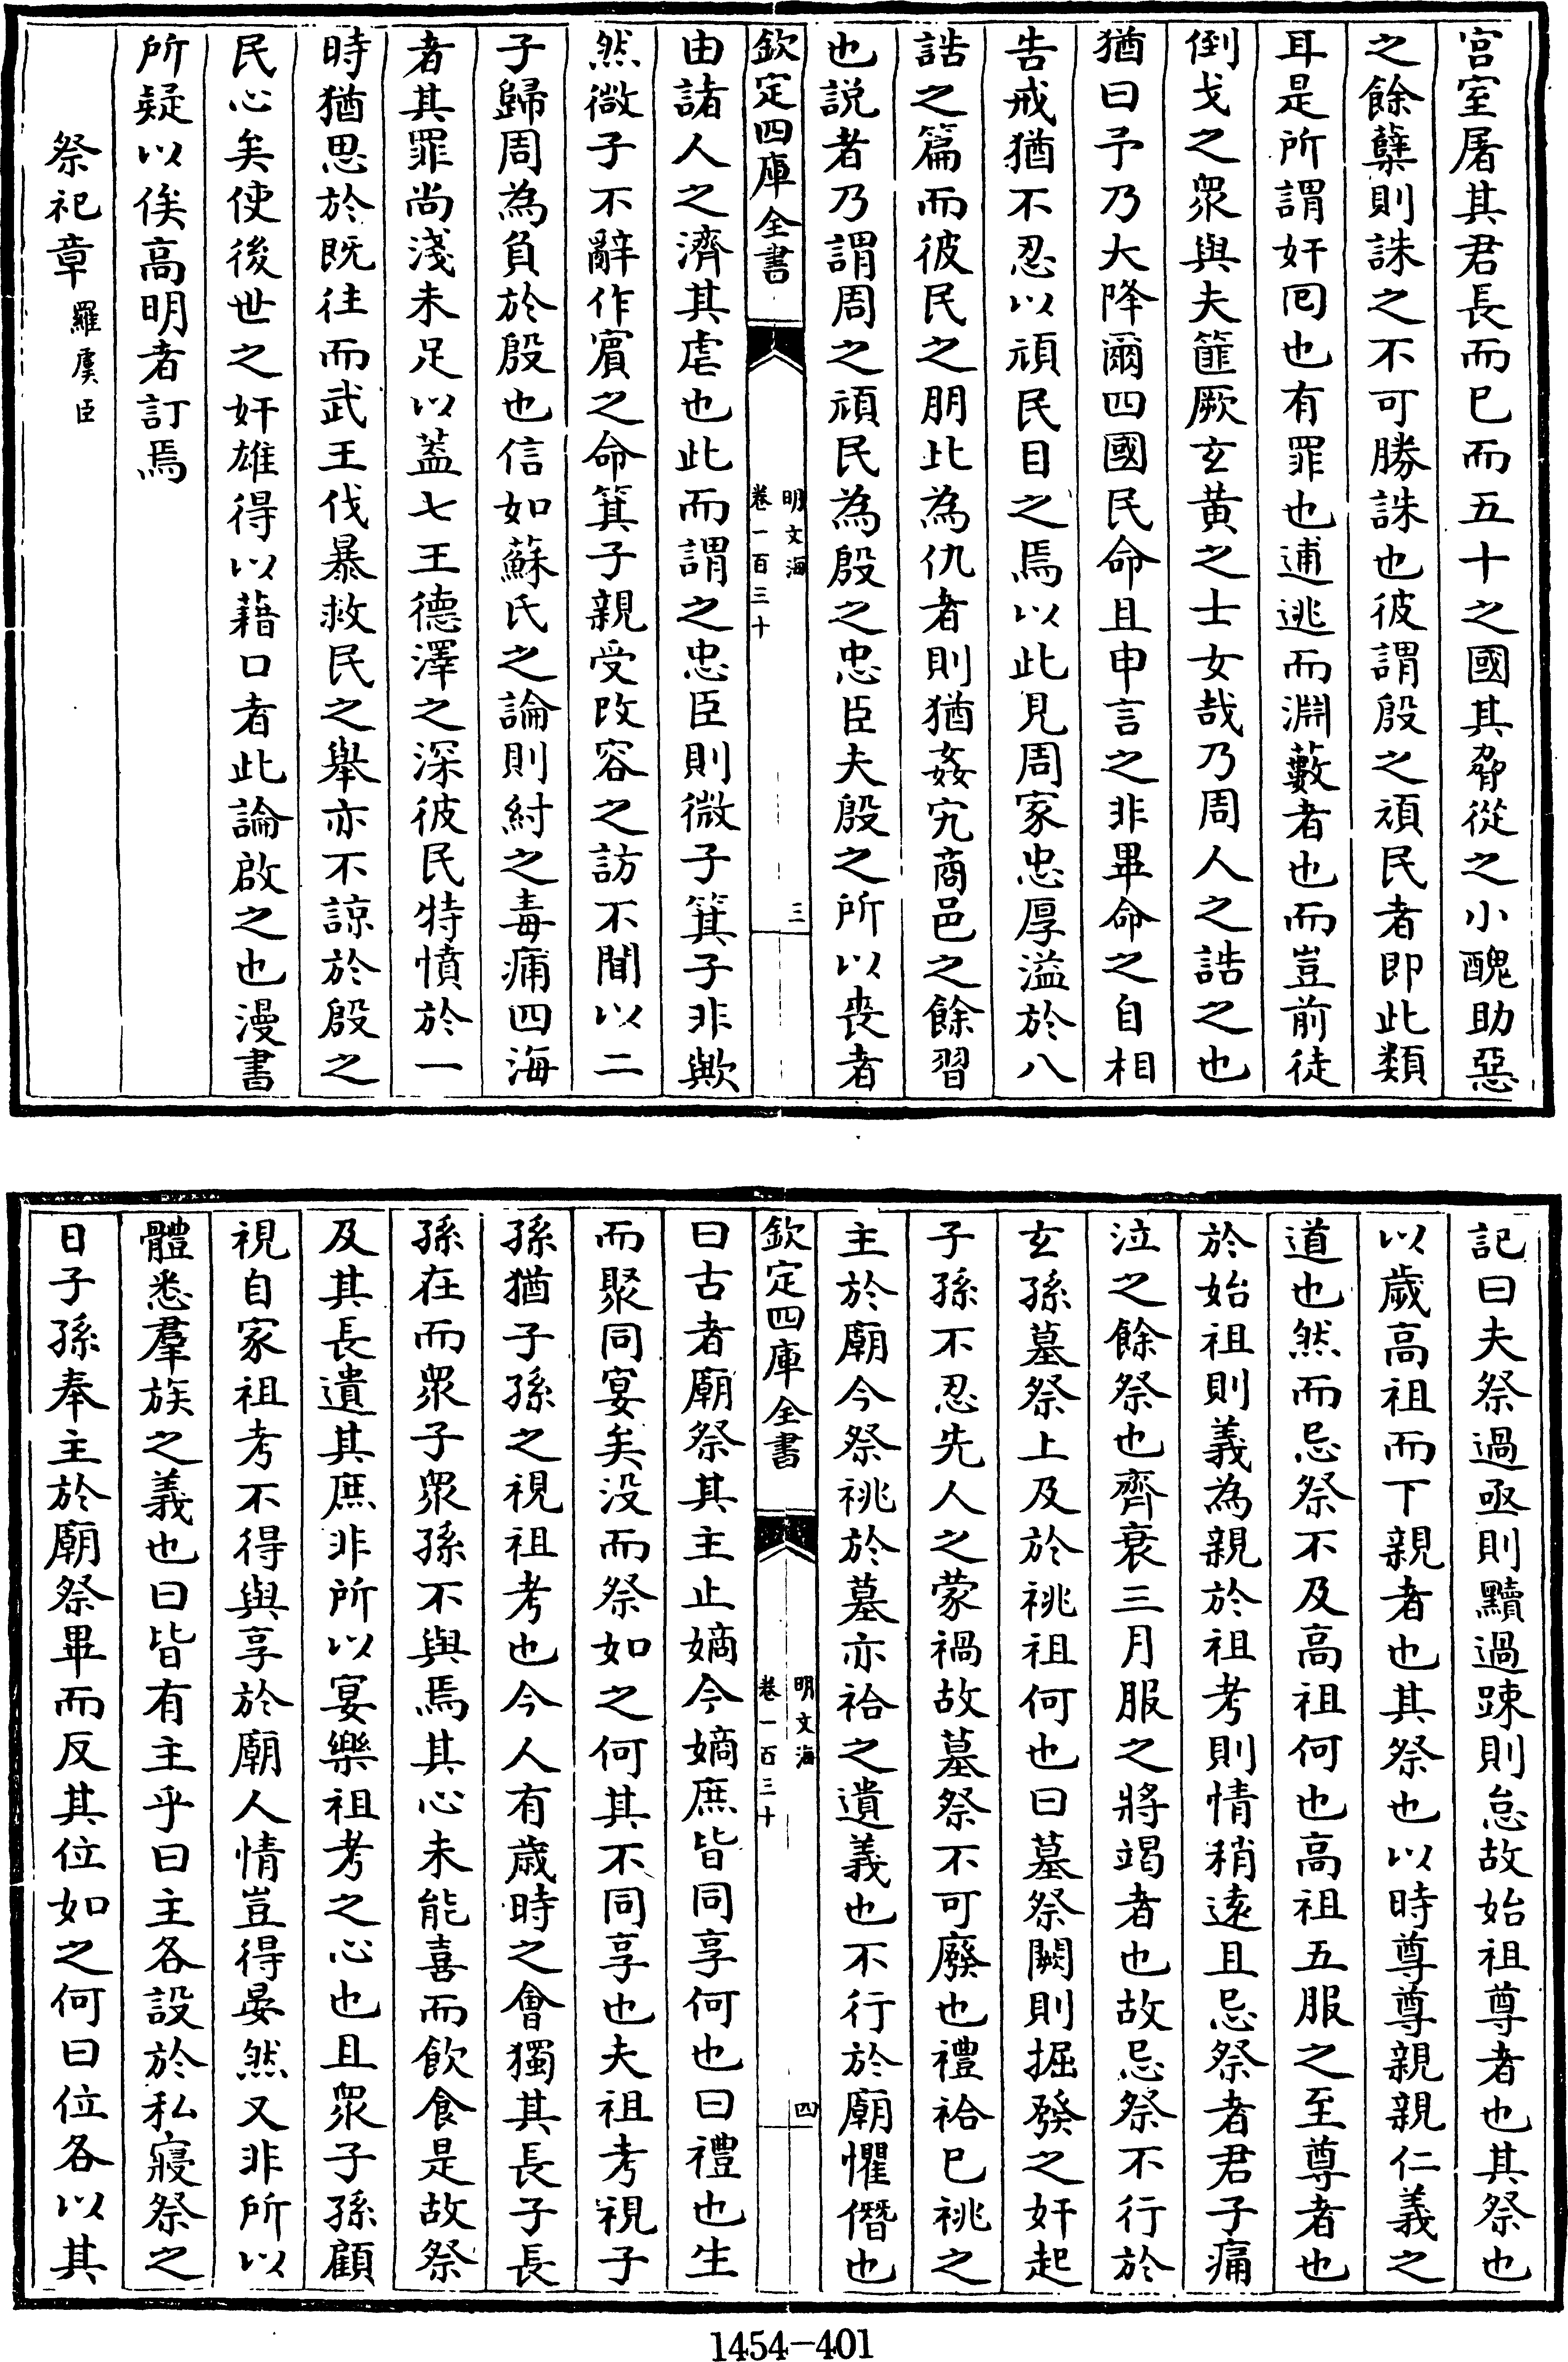 宫室屠其君長而已而五十之國其脅從之小醜助惡
之餘孽則誅之不可勝誅也彼謂殷之頑民者即此類
耳是所謂奸囘也有罪也逋逃而淵藪者也而豈前徒
倒戈之眾與夫篚厥玄黄之士女哉乃周人之誥之也
猶曰予乃大降爾四國民命且申言之非畢命之自相
告戒猶不忍以頑民目之焉以此見周家忠厚溢於八
誥之篇而彼民之朋此為仇者則猶姦宄商邑之餘習
也説者乃謂周之頑民為殷之忠臣夫殷之所以喪者
欽定四庫全書
明文海
卷一百三十
三
由諸人之濟其虐也此而謂之忠臣則微子箕子非歟
然微子不辭作賓之命箕子親受改容之訪不聞以二
子歸周為負於殷也信如蘇氏之論則紂之毒痡四海
者其罪尚淺未足以葢七王德澤之深彼民特憤於一
時猶思於既往而武王伐暴救民之舉亦不諒於殷之
民心矣使後世之奸雄得以藉口者此論啟之也漫書
所疑以俟高明者訂焉
祭祀章 羅虞臣
記曰夫祭過亟則黷過踈則怠故始祖尊者也其祭也
以歲高祖而下親者也其祭也以時尊尊親親仁義之
道也然而忌祭不及高祖何也高祖五服之至尊者也
於始祖則義為親於祖考則情稍逺且忌祭者君子痛
泣之餘祭也齊衰三月服之將竭者也故忌祭不行於
玄孫墓祭上及於祧祖何也曰墓祭闕則掘發之奸起
子孫不忍先人之蒙禍故墓祭不可廢也禮祫已祧之
主於廟今祭祧於墓亦祫之遺義也不行於廟懼僭也
欽定四庫全書
明文海
卷一百三十
四
曰古者廟祭其主止嫡今嫡庶皆同享何也曰禮也生
而聚同宴矣没而祭如之何其不同享也夫祖考視子
孫猶子孫之視祖考也今人有歲時之會獨其長子長
孫在而眾子眾孫不與焉其心未能喜而飲食是故祭
及其長遺其庶非所以宴樂祖考之心也且眾子孫顧
視自家祖考不得與享於廟人情豈得晏然又非所以
體悉羣族之義也曰皆有主乎曰主各設於私寢祭之
日子孫奉主於廟祭畢而反其位如之何曰位各以其
1454-401